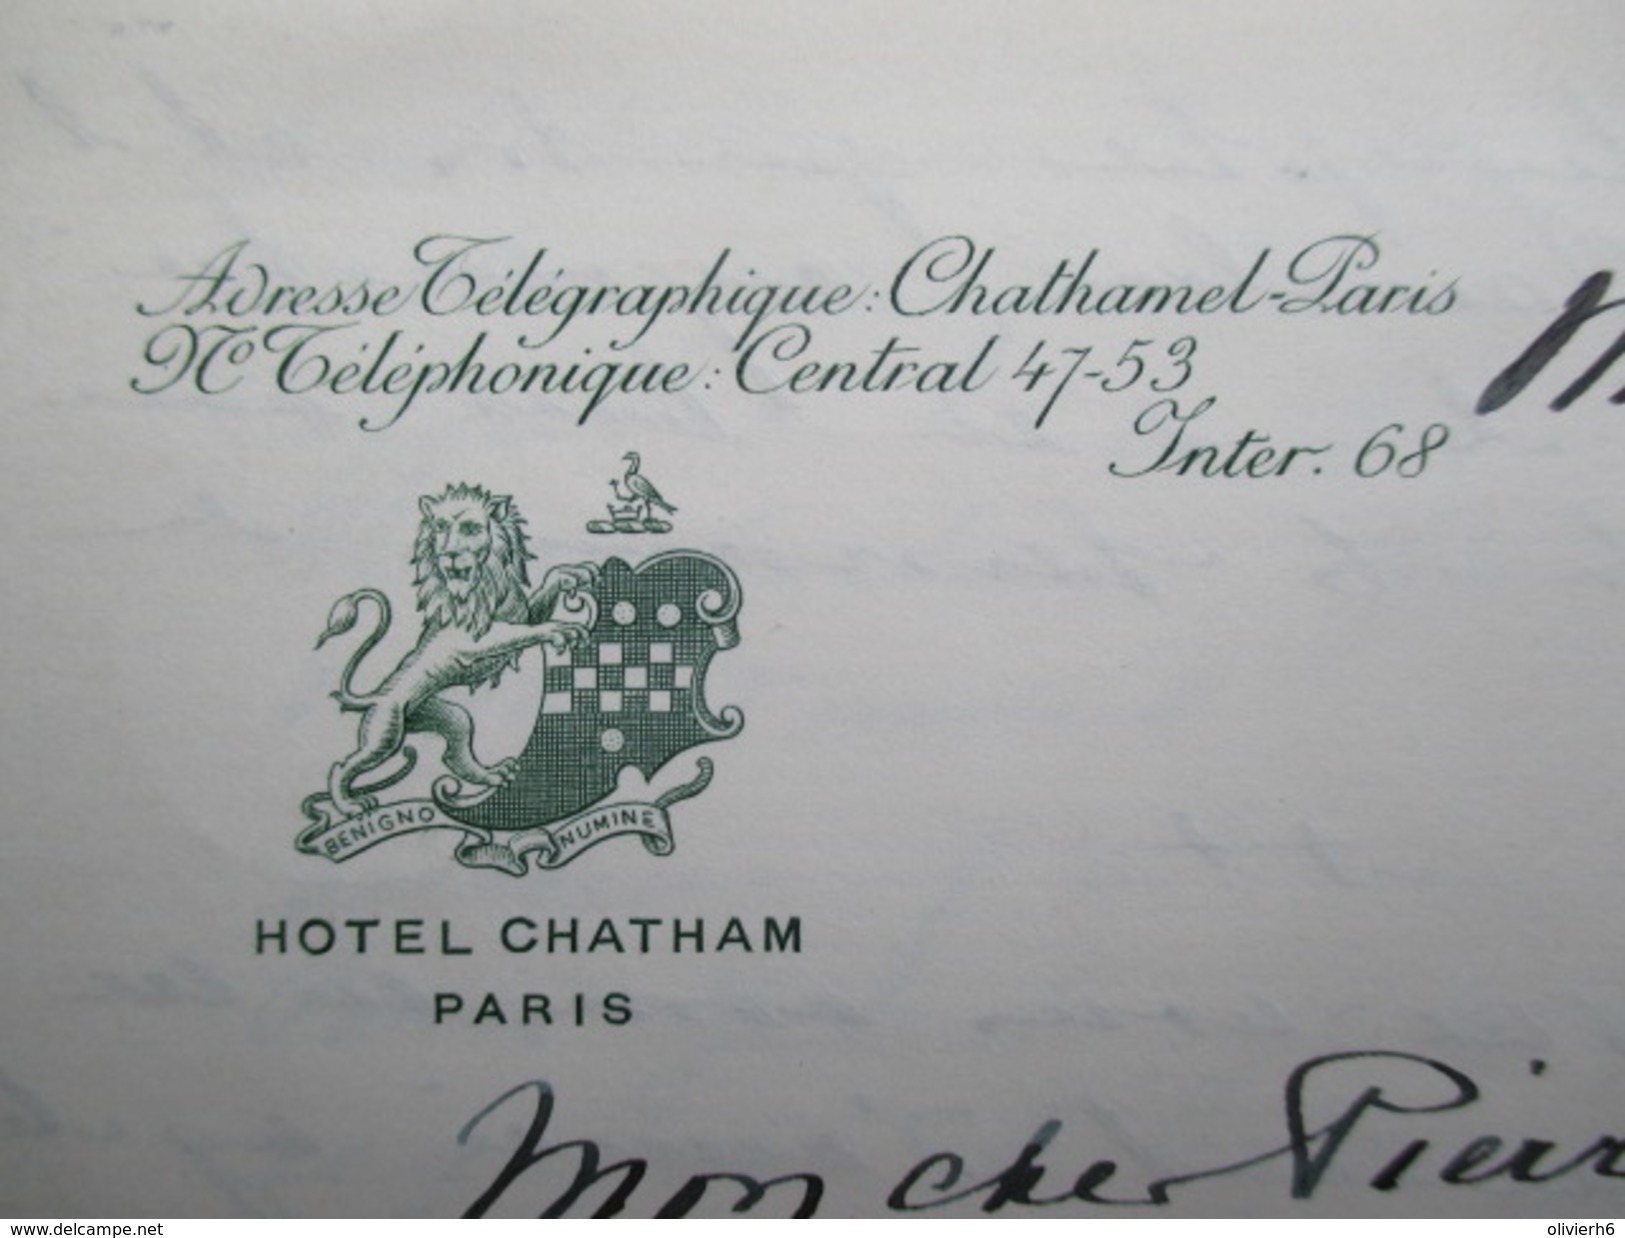 Adresse Télégraphique : Chathamel-Paris
No Téléphonique : Central 47-53
Inter. 68
BENIGNO NUMINE
HOTEL CHATHAM
PARIS
Mon cher Pierr
www.delcampe.net
olivierh6